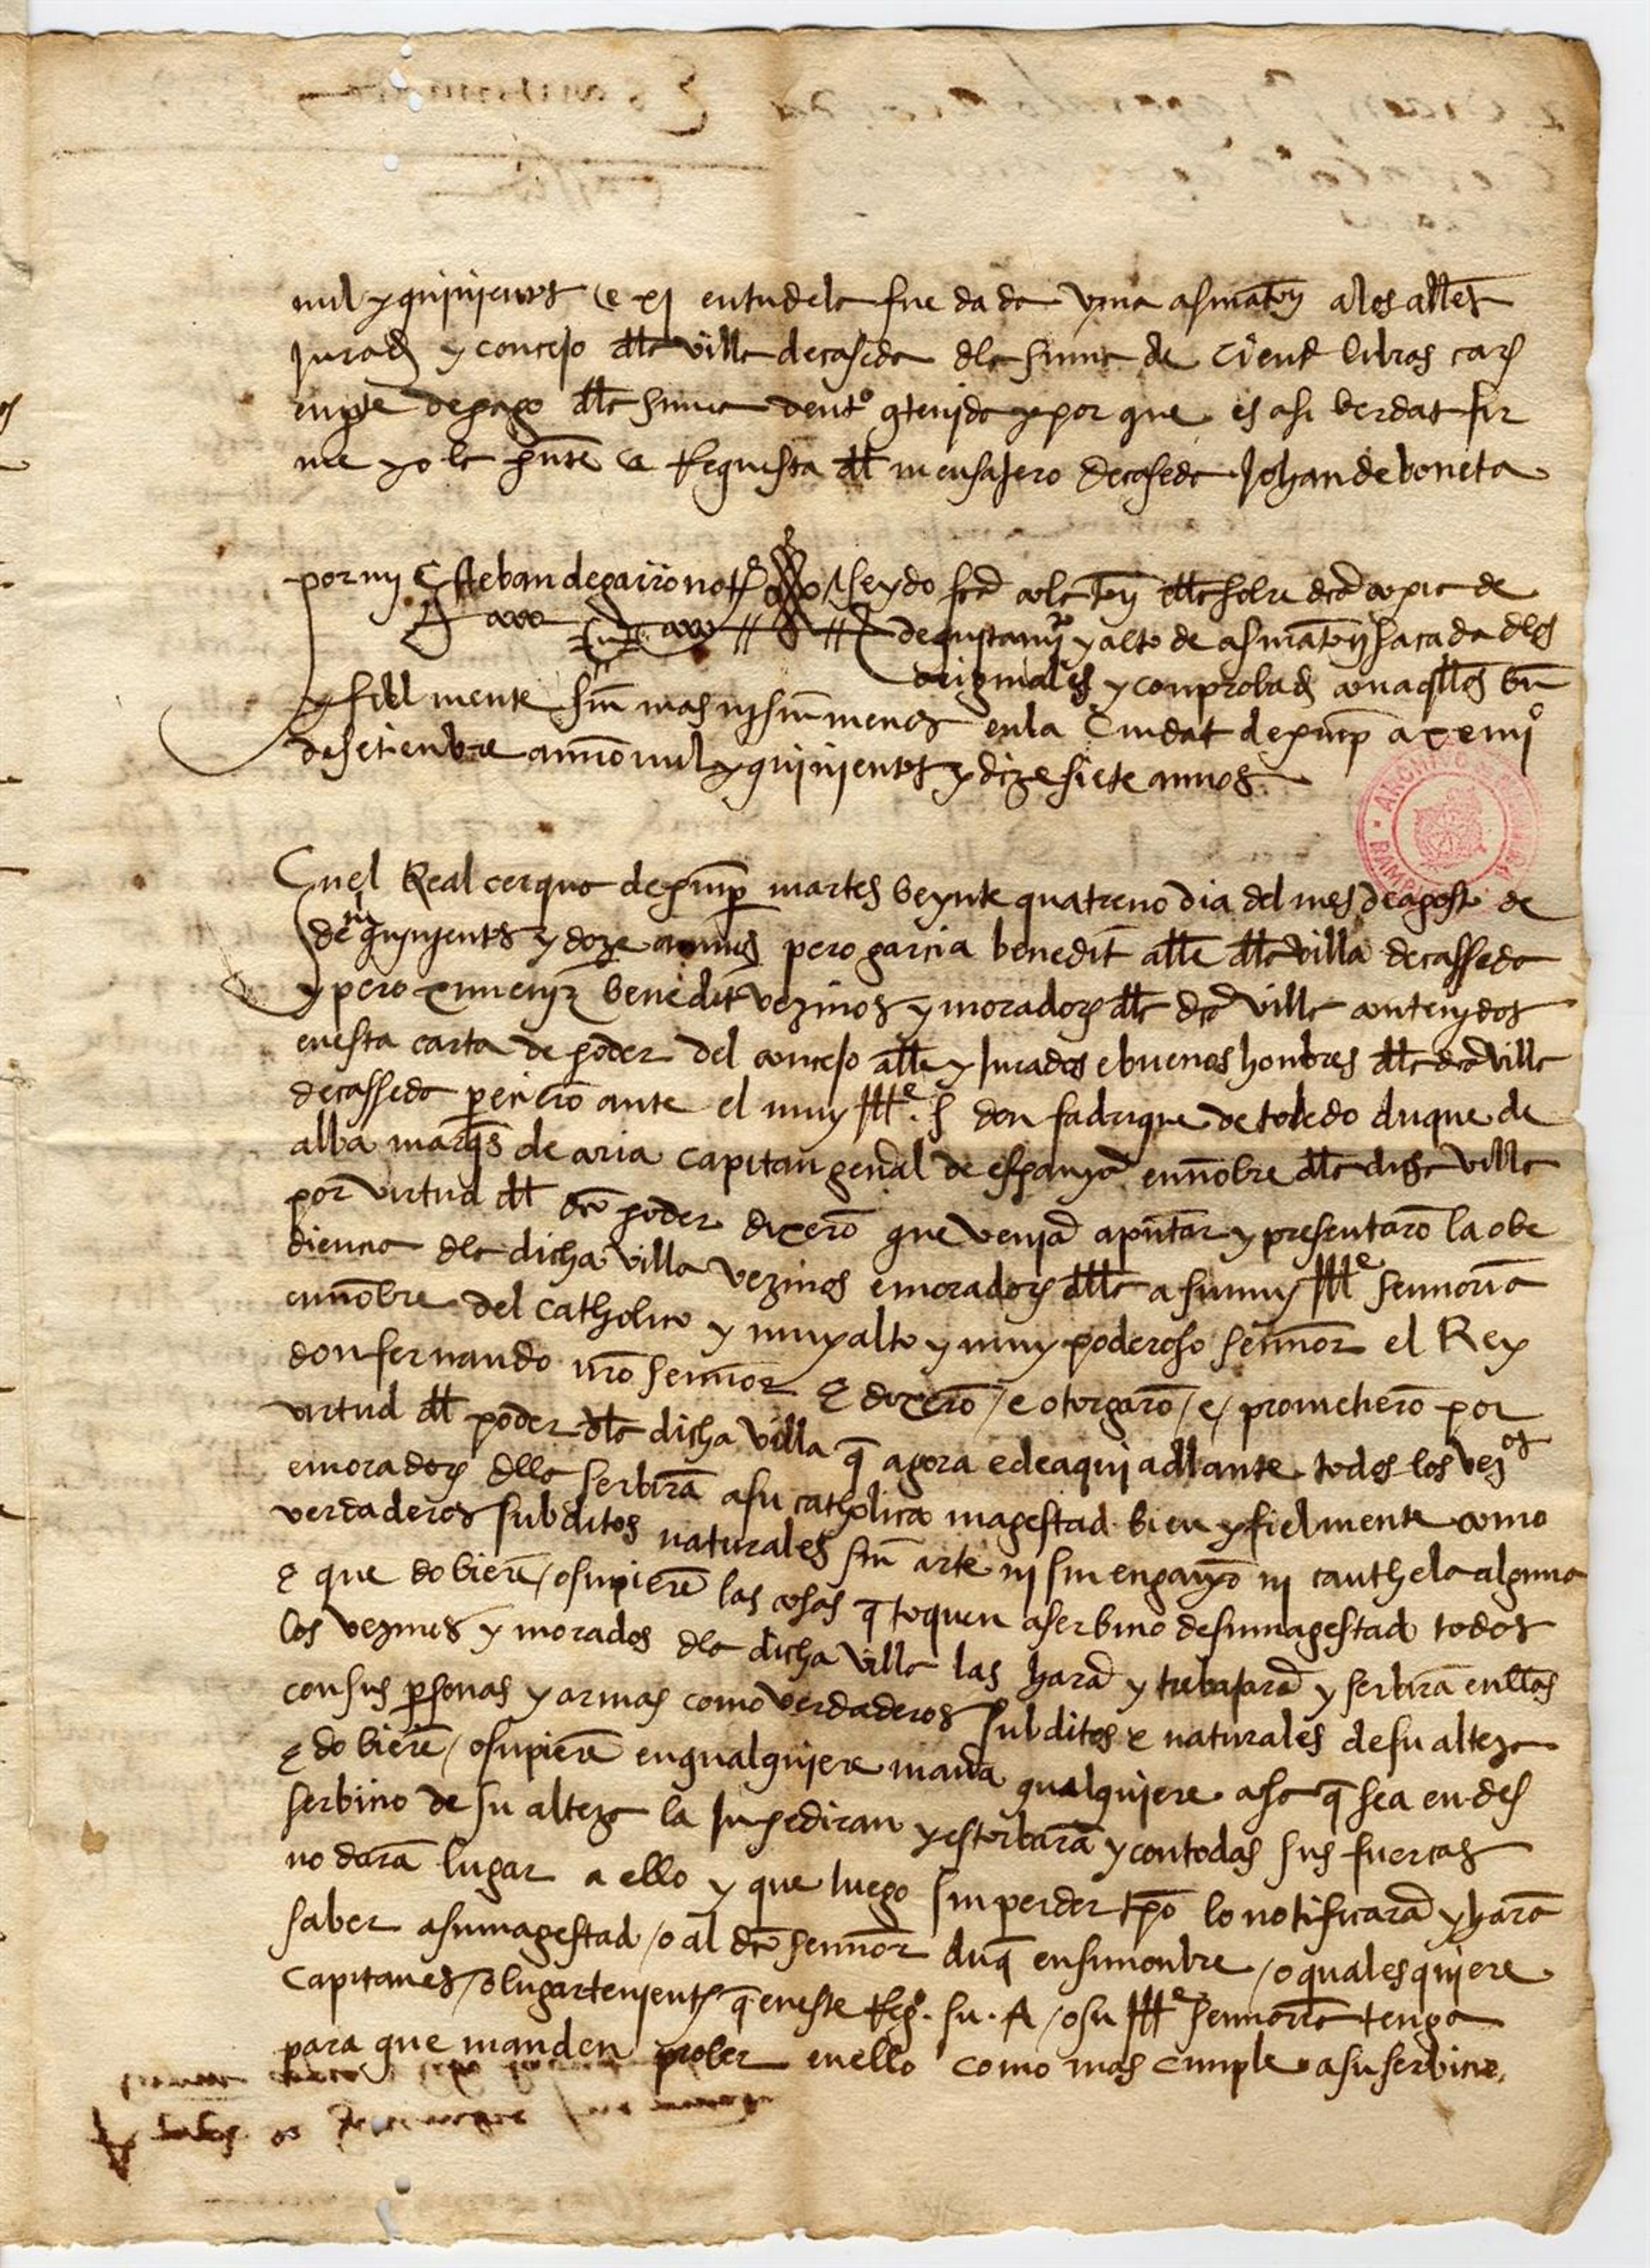 mil y quinientos e xj en tudela fue dada una asinaton a los alldes
Jurads y concejo dlla villa de caseda dla suma de cient libras carls
en pte de pago dlla suma dento contenida y por que es asi berdat fir
me yo la pnte a Requesta dll mensajero de caseda Johan de boneta
por mi Esteban de garro not
seydo fcd dlla sobre dcd copia de
y alto de asinaton sacada dlos
originales y conprobads con aqllos bn
y fielmente sin mas ni sin menos en la Ciudat de pmp a xemo
de setienbre anno mil y quinientos y dizesiete annos
En el Real cerquo de pmp martes beynte quatreno dia del mes de agosto de
de mj quinientos y doze annos pero garcia benedit allde dlla villa de casseda
y pero xmeniz benedit vezinos y moradors dlla dcd villa contenydos
en esta carta de poder del concejo allde y Jurados e buenos honbres dlla dcd villa
de casseda ante el muy Ille. S don fadrique de toledo duque de
alba marqs de coria capitan genal de espanya en nobre dlla dicha villa
por virtud dll dco poder dixero que venia a pntar y presentaro la obe
diencia dla dicha villa vezinos e moradors dlla a su muy Ille sennoria
en nobre del catholico y muy alto y muy poderoso sennor el Rey
don fernando nro sennor e dixero / e otorgaro / e / prometiero por
virtud dll poder dla dicha villa q agora e de aqui adlante todos los vezos
e moradors dlla serbira a su catholica magestad bien y fielmente como
verdaderos subditos naturales sin arte ni sin enganyo ni cauthela alguna
e que dobiere / o supiere las cosas q toquen a serbicio de su magestad todos
los vezinos y morados dla dicha villa las hara y trebajara y serbira en ellas
con sus psonas y armas como verdaderos subditos e naturales de su alteza
e do biere / o supiere en qualquiere mana qualquiere cosa q sea en des
serbicio de su alteza la Inpediran y estorbara y con todas sus fuercas
no dara lugar a ello y que luego sin perder tpo lo notificara y hara
saber a su magestad / o al dco sennor duq en su nonbre / o quales quiere
capitanes / o lugartenients q en este Reg. su. A / o su Ille sennoria tenga
para que manden prober en ello como mas cumple a su serbicio.